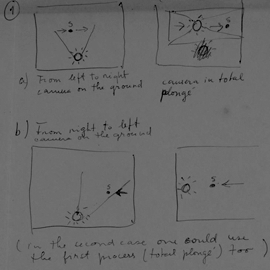 1
S S
a) From left to right camera in total
camera on the ground plongé
b) From right to left
camera on the ground
S S
(in the second case one could use
the first process (total plongé) too)